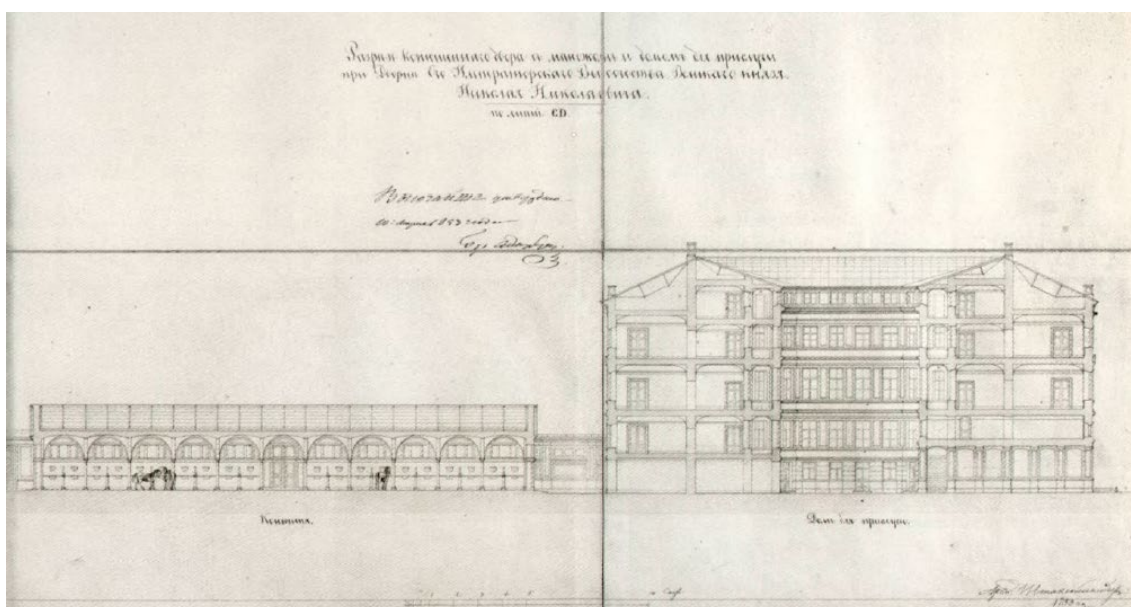 Разрѣзъ конюшеннаго двора съ манежемъ и домомъ для прислуги
при Дворцѣ Его Императорскаго Высочества Великаго Князя
Николая Николаевича.
по линіи CD.
Высочайше утверждено
10 марта 1853 года
Конюшня.
Домъ для прислуги.
Арх. Штакеншнейдеръ